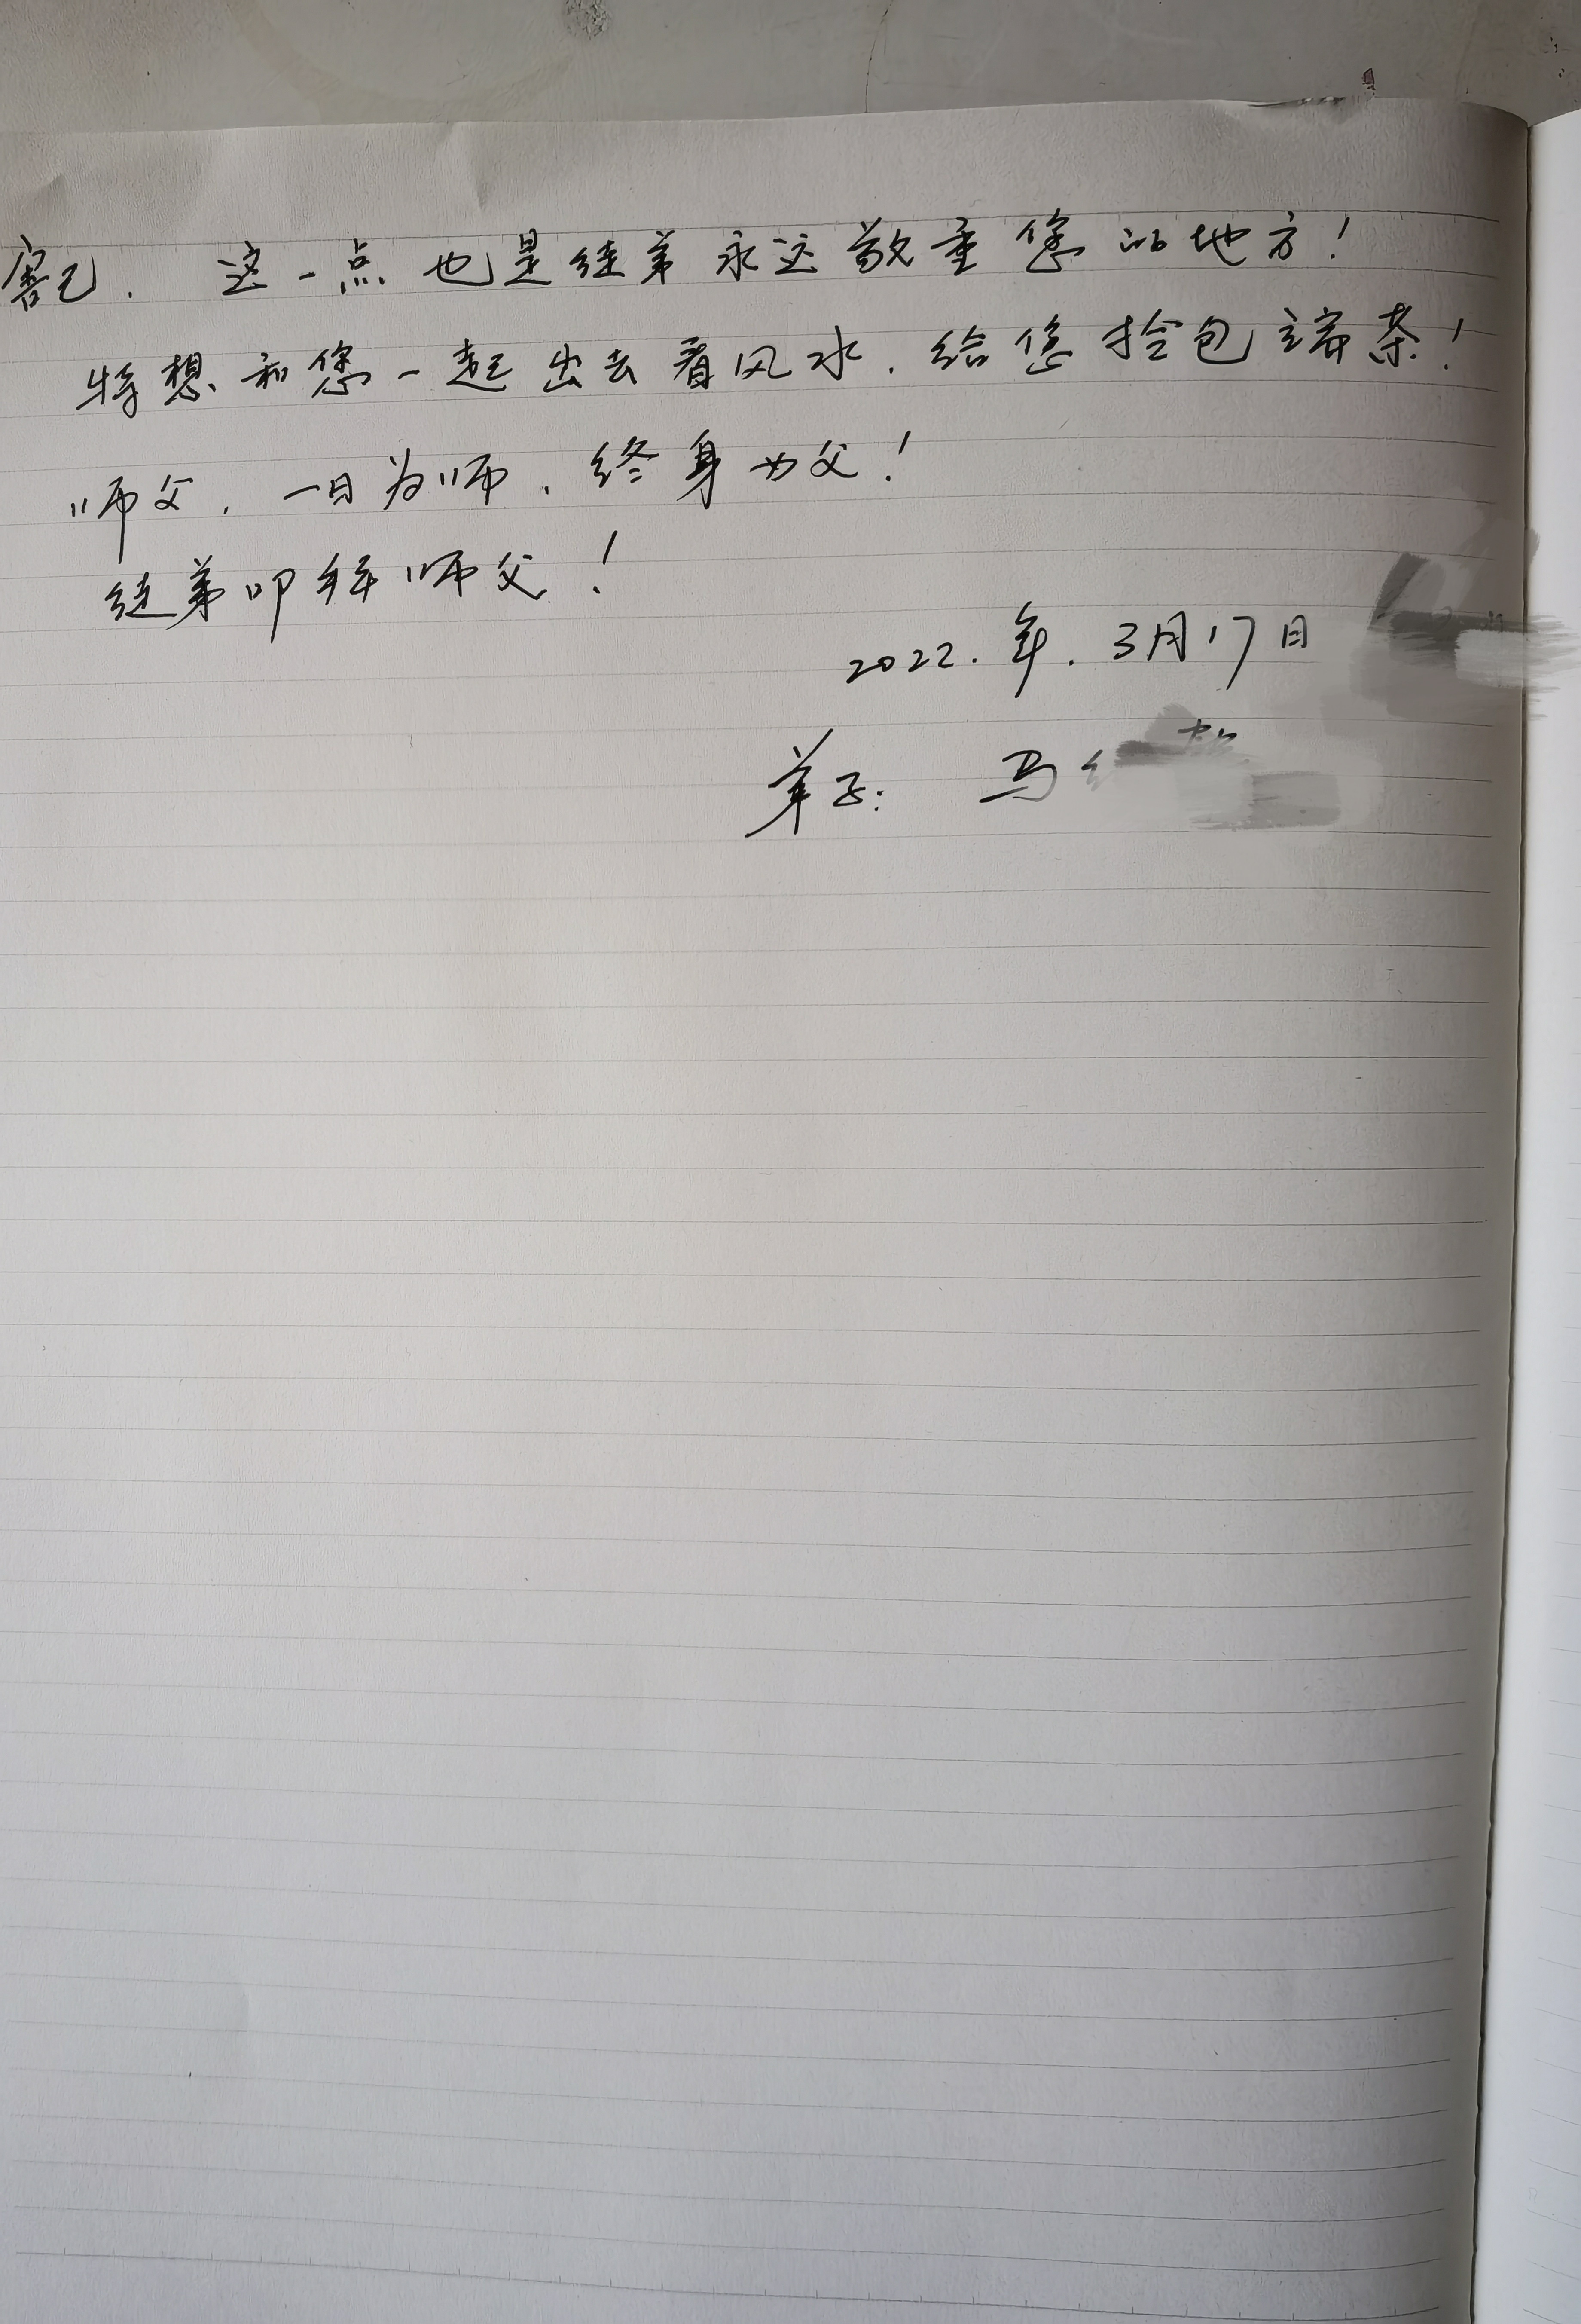 害己. 这一点也是徒弟永远敬重您的地方!
特想和您一起出去看风水.给您拎包端茶!
师父,一日为师,终身为父!
徒弟叩拜师父!
2022.年.3月17日
弟子: 马